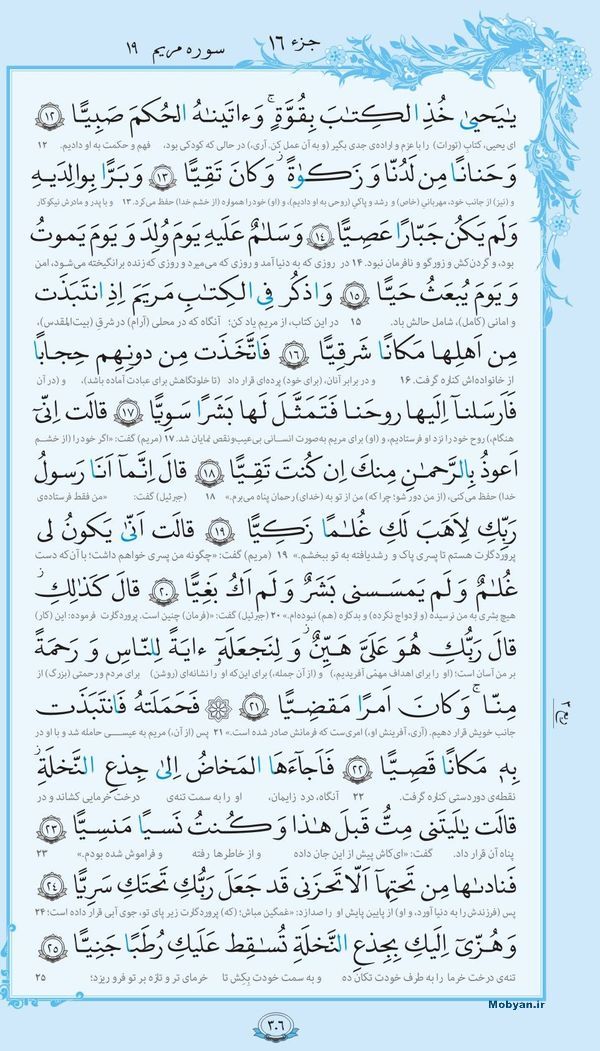 سوره مریم ۱۹
جزء ۱۶
یٰیَحییٰ خُذِ الکِتٰبَ بِقُوَّةٍ ۚ وَءاتَینٰهُ الحُکمَ صَبِیًّا ۱۲
ای یحیی، کتابِ (تورات) را با عزم و اراده‌ی جدی بگیر (و به آن عمل کن. آری،) در حالی که کودکی بود، فهم و حکمت به او دادیم. ۱۲
وَحَنانًا مِن لَدُنّا وَ زَکوٰةً ۖ وَکانَ تَقِیًّا ۱۳ وَ بَرًّا بِوالِدَیهِ
و (نیز) از جانب خود، مهربانیِ (خاص) و رشد و پاکیِ (روحی به او دادیم)، و (او) خود را همواره (از خشم خدا) حفظ می‌کرد. ۱۳ و با پدر و مادرش نیکوکار
وَلَم یَکُن جَبّارًا عَصِیًّا ۱۴ وَ سَلٰمٌ عَلَیهِ یَومَ وُلِدَ وَ یَومَ یَموتُ
بود، و گردن‌کش و زورگو و نافرمان نبود. ۱۴ در روزی که به دنیا آمد و روزی که می‌میرد و روزی که زنده برانگیخته می‌شود، امن
وَ یَومَ یُبعَثُ حَیًّا ۱۵ وَ اذکُر فِی الکِتٰبِ مَریَمَ اِذِ انتَبَذَت
و امانی (کامل)، شامل حالش باد. ۱۵ در این کتاب، از مریم یاد کن؛ آنگاه که در محلی (آرام) در شرقِ (بیت‌المقدس)،
مِن اَهلِها مَکانًا شَرقِیًّا ۱۶ فَاتَّخَذَت مِن دونِهِم حِجابًا
از خانواده‌اش کناره گرفت. ۱۶ و در برابر آنان، (برای خود) پرده‌ای قرار داد (تا خلوتگاهش برای عبادت آماده باشد)، و (در آن
فَاَرسَلنآ اِلَیها روحَنا فَتَمَثَّلَ لَها بَشَرًا سَوِیًّا ۱۷ قالَت اِنّیٓ
هنگام)، روح خود را نزد او فرستادیم، و (او) برای مریم به‌صورت انسانی بی‌عیب‌ونقص نمایان شد. ۱۷ (مریم) گفت: «اگر خود را (از خشم
اَعوذُ بِالرَّحمٰنِ مِنکَ اِن کُنتَ تَقِیًّا ۱۸ قالَ اِنَّمآ اَنَا رَسولُ
خدا) حفظ می‌کنی، (از من دور شو؛ چرا که) من از تو به (خدای) رحمان پناه می‌برم.» ۱۸ (جبرئیل) گفت: «من فقط فرستاده‌ی
رَبِّکِ لِاَهَبَ لَکِ غُلٰمًا زَکِیًّا ۱۹ قالَت اَنّیٰ یَکونُ لی
پروردگارت هستم تا پسری پاک و رشدیافته به تو ببخشم.» ۱۹ (مریم) گفت: «چگونه من پسری خواهم داشت؛ با آن‌که دست
غُلٰمٌ وَ لَم یَمسَسنی بَشَرٌ وَ لَم اَکُ بَغِیًّا ۲۰ قالَ کَذٰلِکِ
هیچ بشری به من نرسیده (و ازدواج نکرده) و بدکاره (هم) نبوده‌ام.» ۲۰ (جبرئیل) گفت: «(فرمان) چنین است. پروردگارت فرموده: این (کار)
قالَ رَبُّکِ هُوَ عَلَیَّ هَیِّنٌ ۖ وَ لِنَجعَلَهُٓ ءایَةً لِلنّاسِ وَ رَحمَةً
بر من آسان است؛ (او را برای اهداف مهمّی آفریدیم،) و (از آن جمله،) برای این‌که او را نشانه‌ای (روشن) برای مردم و رحمتی (بزرگ) از
مِنّا ۚ وَکانَ اَمرًا مَقضِیًّا ۲۱ فَحَمَلَتهُ فَانتَبَذَت
جانب خویش قرار دهیم. (آری، آفرینش او،) امری‌ست که فرمانش صادر شده است.» ۲۱ پس (از آن،) مریم به عیسی حامله شد و با او در
بِهِ مَکانًا قَصِیًّا ۲۲ فَاَجآءَهَا المَخاضُ اِلیٰ جِذعِ النَّخلَةِ
نقطه‌ی دوردستی کناره گرفت. ۲۲ آنگاه، درد زایمان، او را به سمت تنه‌ی درخت خرمایی کشاند و در
قالَت یٰلَیتَنی مِتُّ قَبلَ هٰذا وَ کُنتُ نَسیًا مَنسِیًّا ۲۳
پناه آن قرار داد. گفت: «ای‌کاش پیش از این جان داده و از خاطرها رفته و فراموش شده بودم.» ۲۳
فَنادىٰها مِن تَحتِهآ اَلّا تَحزَنی قَد جَعَلَ رَبُّکِ تَحتَکِ سَرِیًّا ۲۴
پس (فرزندش را به دنیا آورد، و او) از پایین پایش او را صدا زد: «غمگین مباش؛ (که) پروردگارت زیر پای تو، جوی آبی قرار داده است؛ ۲۴
وَ هُزّیٓ اِلَیکِ بِجِذعِ النَّخلَةِ تُسٰقِط عَلَیکِ رُطَبًا جَنِیًّا ۲۵
تنه‌ی درخت خرما را به طرف خودت تکان ده و به سمت خودت بِکِش تا خرمای تر و تازه بر تو فرو ریزد؛ ۲۵
۳۰۶
Mobyan.ir